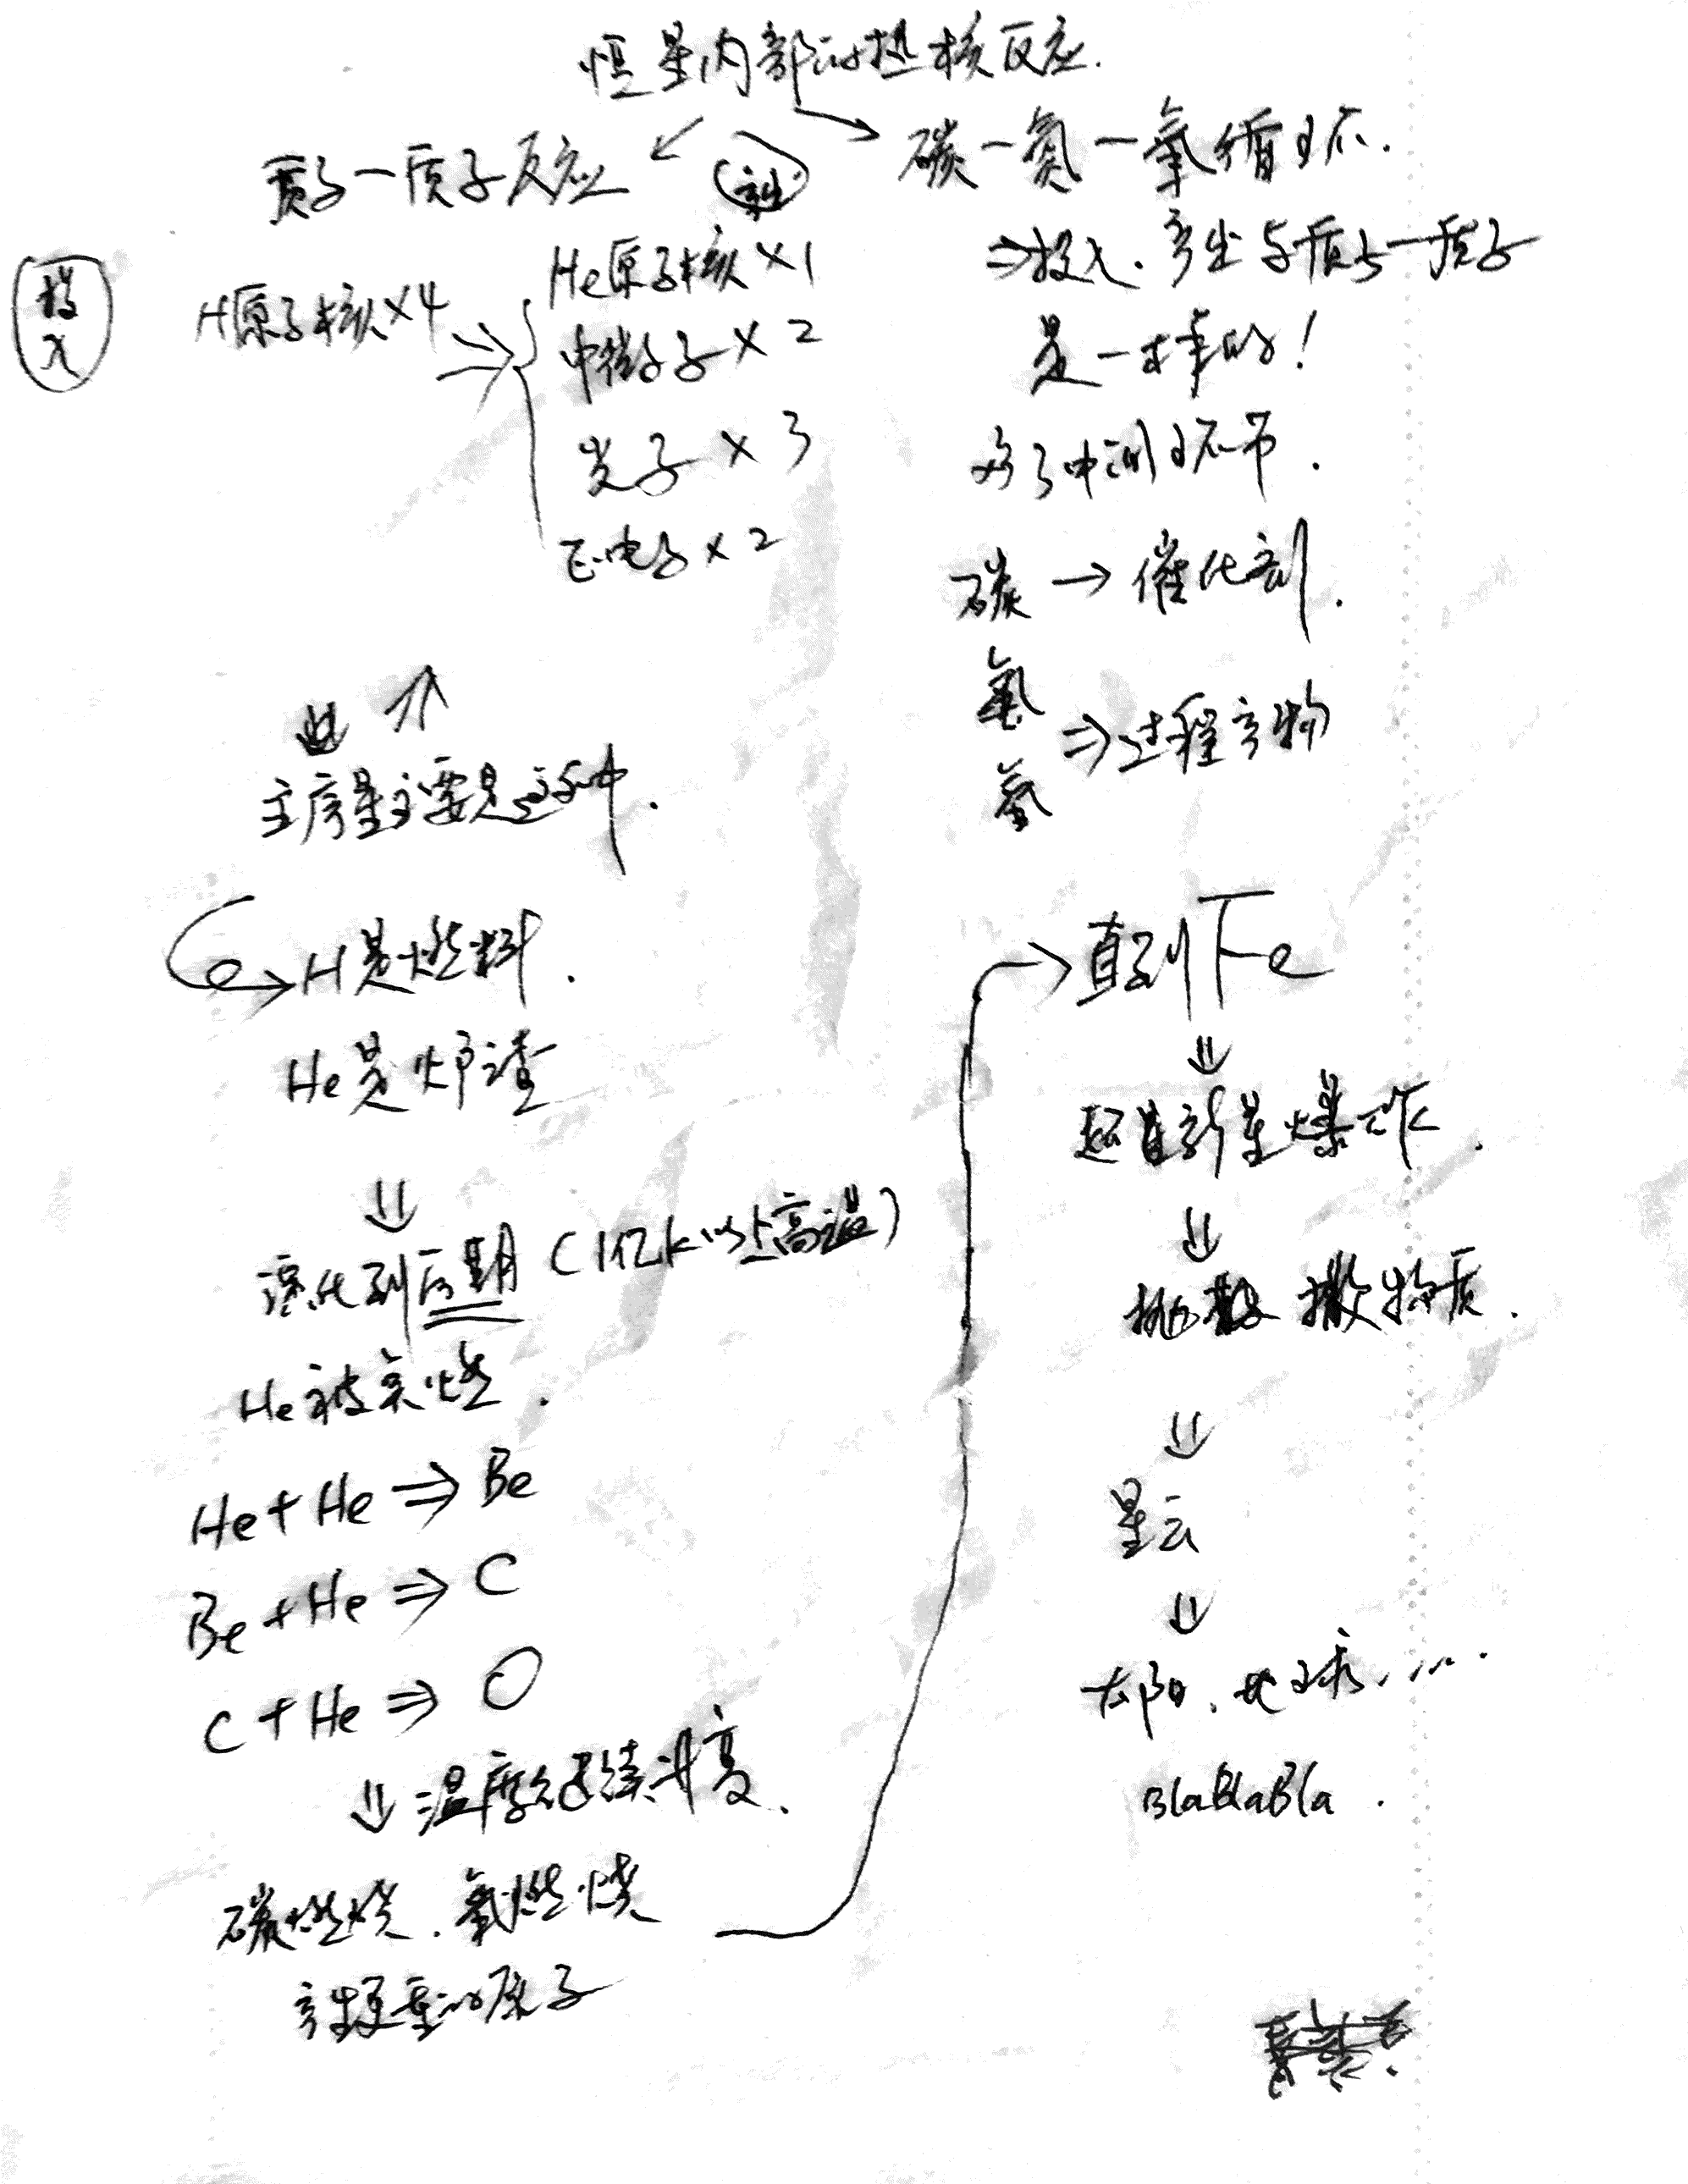 恒星内部的热核反应.
质子－质子反应
产生
投入
H原子核×4 ⇒
He原子核×1
中微子×2
光子×3
正电子×2
主序星主要是这种.
H是燃料.
He是炉渣
⇓
演化到后期(1亿K以上高温)
He被点燃.
He+He⇒Be
Be+He⇒C
C+He⇒O
⇓温度继续升高.
碳燃烧.氧燃烧
产生更重的原子
碳－氮－氧循环.
⇒投入.产出与质子－质子
是一样的!
多了中间环节.
碳→催化剂.
氮
氧
⇒过程产物
→直到Fe
⇓
超新星爆炸.
⇓
抛撒物质.
⇓
星云
⇓
太阳.地球.....
BlaBlaBla.